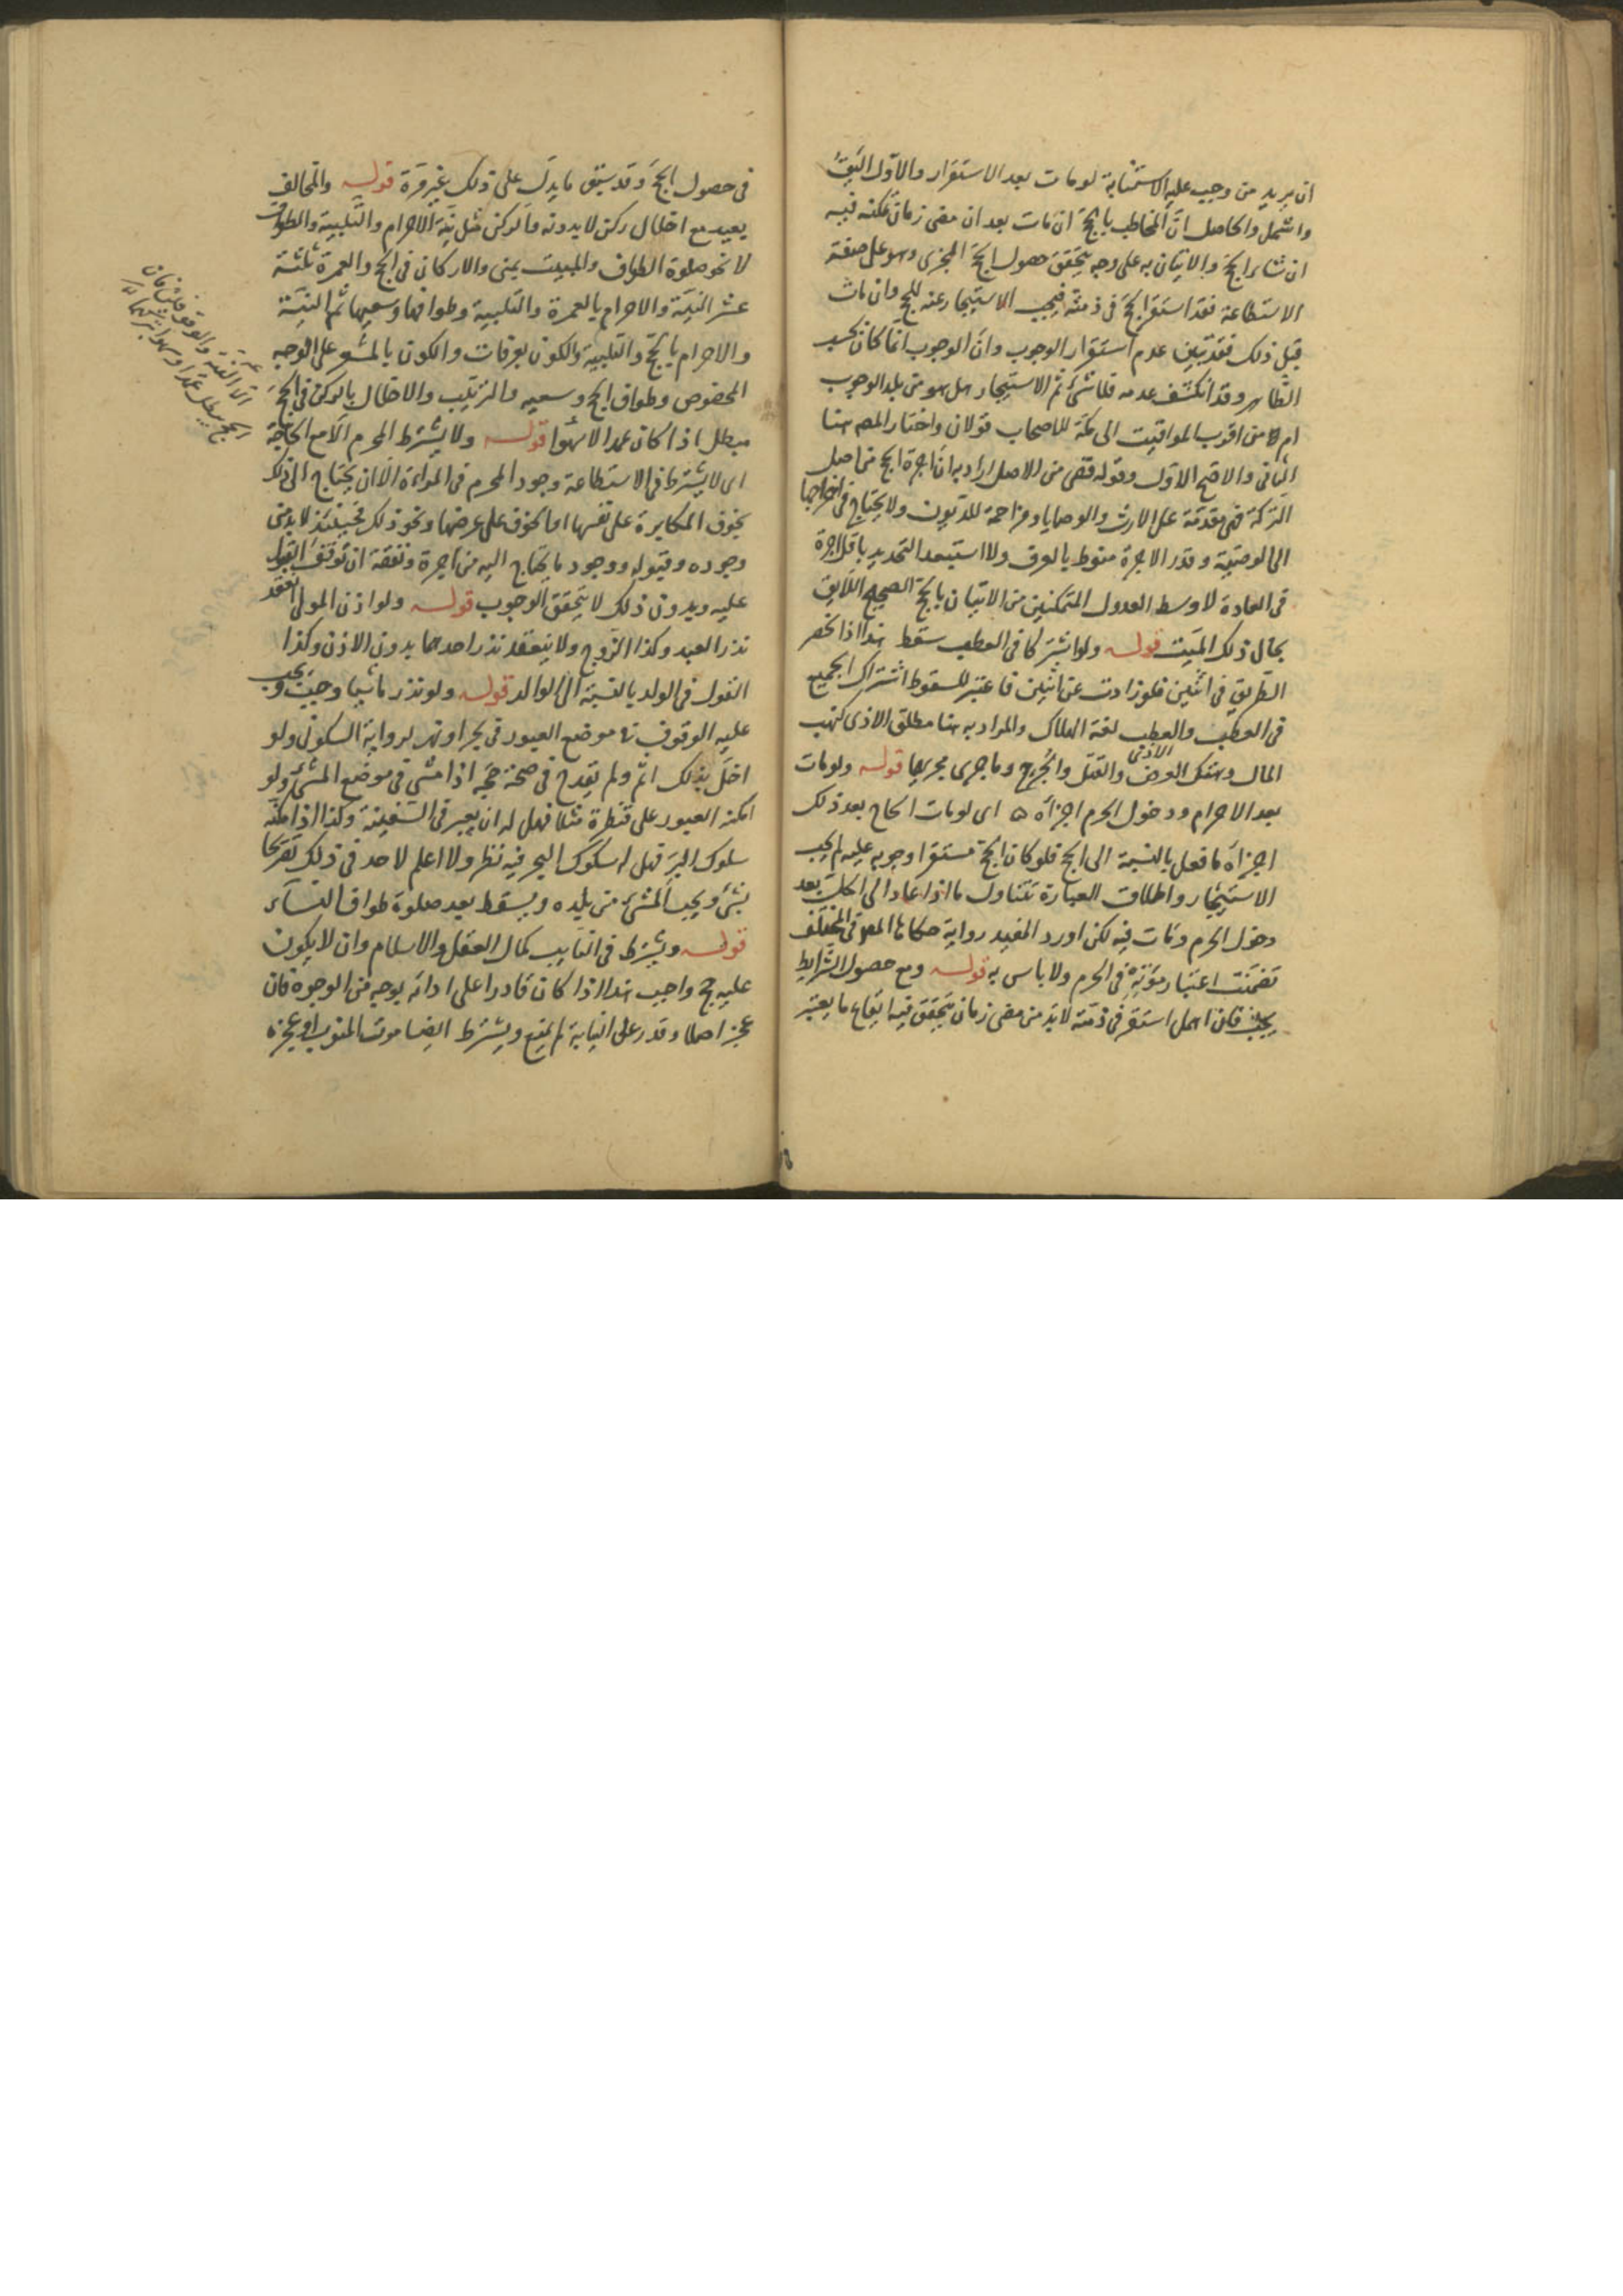 ان يريد من وجب عليه الاستنابة لو مات بعد الاستقرار والاول اليق
واشمل والحاصل ان المخاطب بالحج ان مات بعد ان مضى زمان يمكنه فيه
انشاء الحج والاتيان به على وجه يتحقق حصول الحج المجزى وهو على صفة
الاستطاعة فقد استقر الحج فى ذمته فيجب الاستيجار عنه للحج وان مات
قبل ذلك فقد تبين عدم استقرار الوجوب وان الوجوب انما كان بحسب
الظاهر وقد انكشف عدمه فلا شئ ثم الاستيجار هل هو من بلد الوجوب
ام من اقرب المواقيت الى مكة للاصحاب قولان واختار المصه هنا
الثانى والاصح الاول وقوله فمن الاصل اراد به ان اجرة الحج من اصل
التركة فهى مقدمة على الارث والوصايا ومزاحمة للديون ولا يحتاج فى اخراجها
الى الوصية وقدر الاجرة منوط بالعرف ولا استبعد التحديد باقل اجرة
فى العادة لاوسط العدول المتمكنين من الاتيان بالحج الصحيح اللايق
بحال ذلك الميت قوله ولو اشتركا فى العطب سقط هذا اذا انحصر
الطريق فى اثنين فلو زادت عن اثنين فاعتبر للسقوط اشتراك الجميع
فى العطب والعطب لغة الهلاك والمراد به هنا مطلق الاذى كنهب
المال وهتك العرض والقتل والجرح وما جرى مجريها قوله ولو مات
بعد الاحرام ودخول الحرم اجزأه اى لو مات الحاج بعد ذلك
اجزأه ما فعل بالنسبة الى الحج فلو كان الحج مستقرا وجوبه عليه لم يجب
الاستيجار واطلاق العبارة تتناول ما اذا عاد الى الحل بعد
دخول الحرم ومات فيه لكن اورد المفيد رواية حكاها المصه فى المختلف
تضمنت اعتبار موته فى الحرم ولا باس به قوله ومع حصول الشرايط
يجب فان اهمل استقر فى ذمته لابد من مضى زمان يتحقق فيه ايقاع ما يعتبر
فى حصول الحج وقد سبق ما يدل على ذلك غير مرة قوله والمخالف
يعيد مع اخلال ركن لا بدونه والركن مثل نية الاحرام والتلبية والطواف
لا نحو صلوة الطواف والمبيت بمنى والاركان فى الحج والعمرة ثلثة
عشر النية والاحرام بالعمرة والتلبية وطوافها وسعيها ثم النية
والاحرام بالحج والتلبية والكون بعرفات والكون بالمشعر على الوجه
المخصوص وطواف الحج وسعيه والترتيب والاخلال بالركن فى الحج
مبطل اذا كان عمدا لا سهوا قوله ولا يشترط المحرم الا مع الحاجة
اى لا يشترط فى الاستطاعة وجود المحرم فى المراءة الا ان يحتاج الى ذلك
بخوف المكابرة على نفسها او الخوف على عرضها ونحو ذلك فحينئذ لابد من
وجوده وقبوله ووجود ما يحتاج اليه من اجرة ونفقة ان توقف القبول
عليه وبدون ذلك لا يتحقق الوجوب قوله ولو اذن المولى انعقد
نذر العبد وكذا الزوج ولا ينعقد نذر احدهما بدون الاذن وكذا
القول فى الولد بالنسبة الى الوالد قوله ولو نذر ماشيا وجب ويجب
عليه الوقوف فى موضع العبور فى بحر او نهر لرواية السكونى ولو
اخل بذلك اثم ولم يقدح فى صحة حجه اذا مشى فى موضع المشى ولو
امكنه العبور على قنطرة مثلا فهل له ان يعبر فى السفينة وكذا اذا امكنه
سلوك البر فهل له سلوك البحر فيه نظر ولا اعلم لاحد فى ذلك تصريحا
بشئ ويجب المشى من بلده ويسقط بعد صلوة طواف النساء
قوله ويشترط فى النايب كمال العقل والاسلام وان لا يكون
عليه حج واجب هذا اذا كان قادرا على ادائه بوجه من الوجوه فان
عجز اصلا وقدر على النيابة لم يمنع ويشترط ايضا موت المنوب او عجزه
الا النية والوقوفين فان
الحج يبطل عمدا وسهوا بتركهما